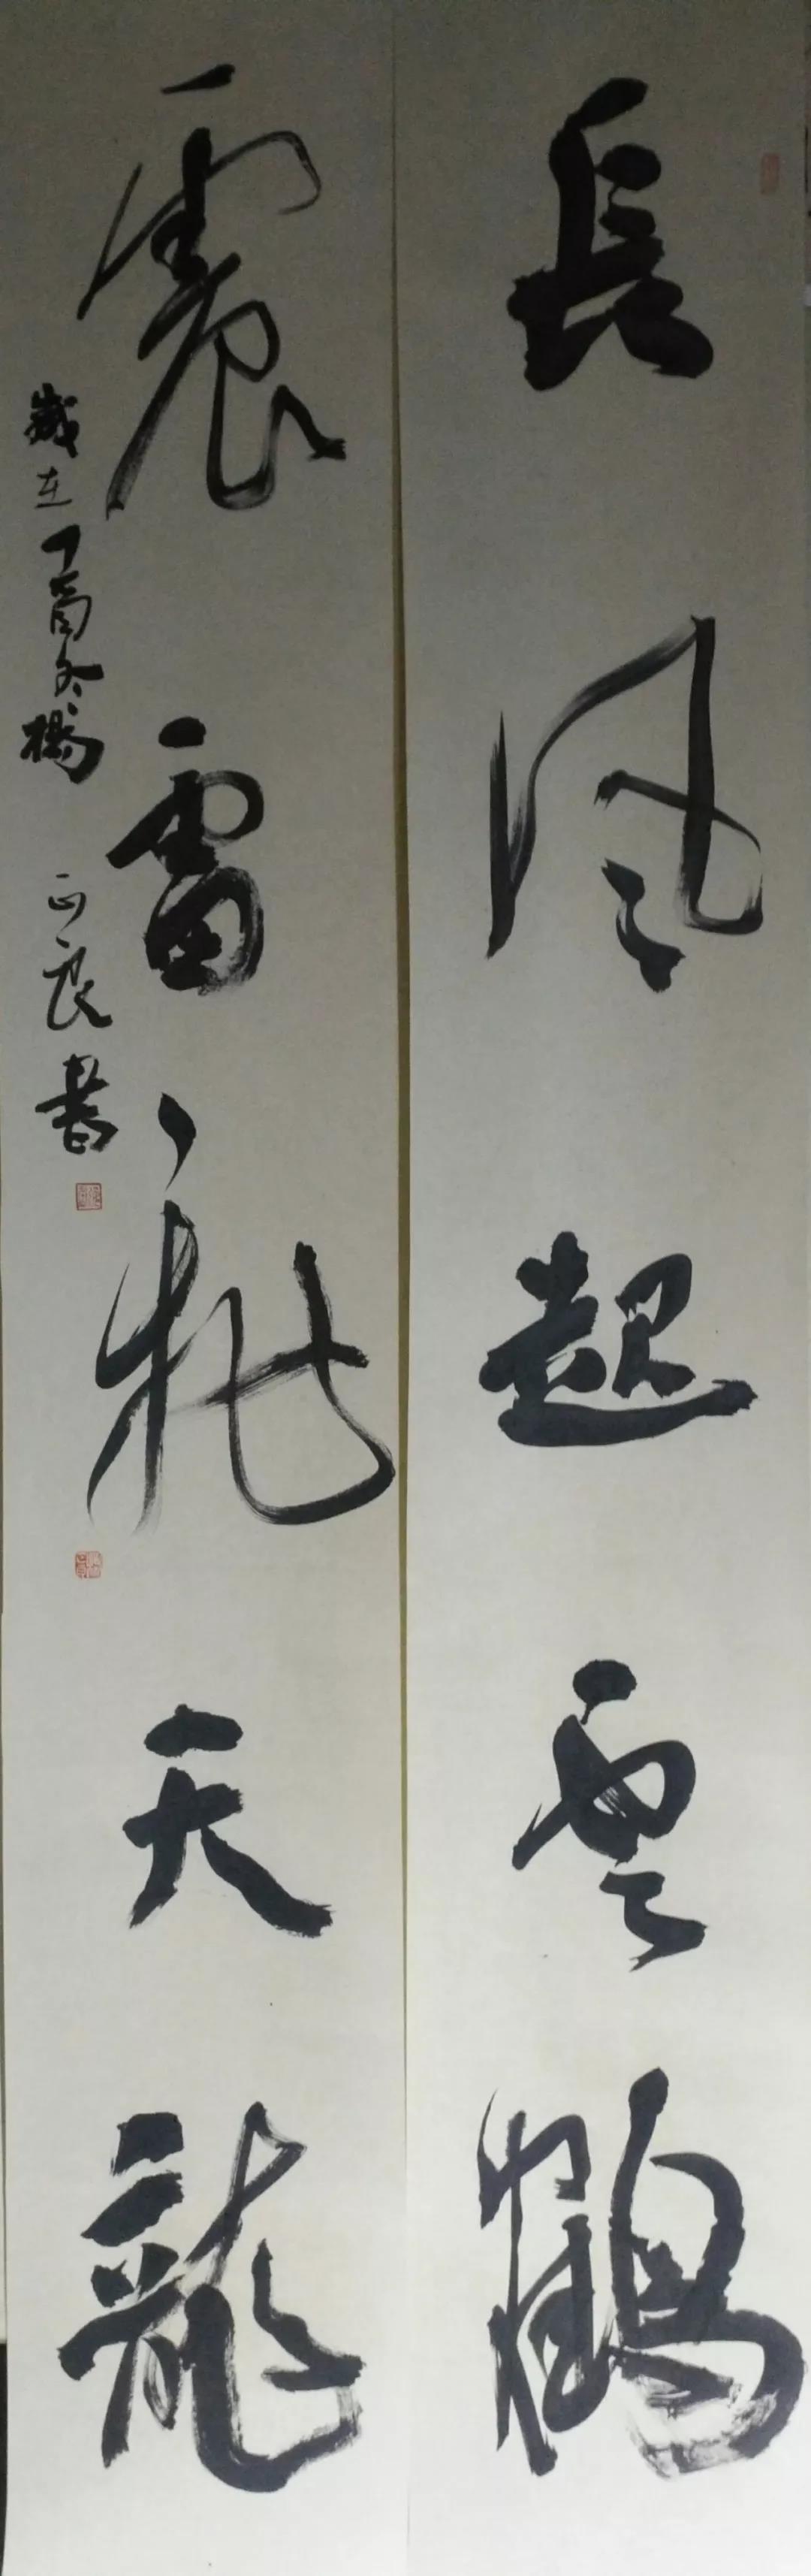 長風起雲鶴
震雷飛天龍
歲在丁酉冬楊正良書